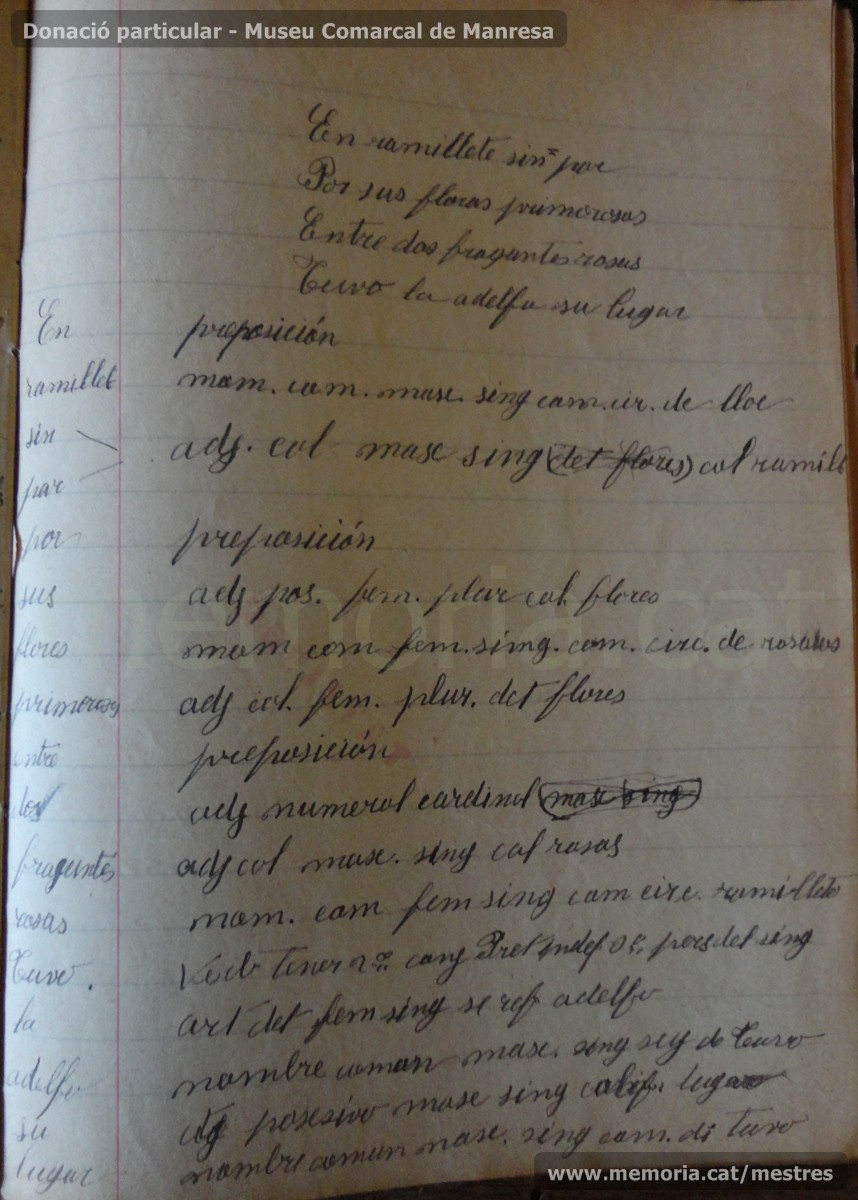 Donació particular - Museu Comarcal de Manresa
En ramillete sin par
Por sus flores primorosas
Entre dos fragantes rosas
Tuvo la adelfa su lugar
En preposición
ramillet nom. com. masc. sing com. cir. de lloc
sin par adj. cal masc sing (det flores) cal ramill
por preposición
sus adj pos. fem. plur cal. flores
flores nom com fem. sing. com. circ. de
primorosas adj cal. fem. plur. det flores
entre preposición
dos adj numeral cardinal masc sing
fragantes adj cal masc. sing cal rosas
rosas nom. com fem sing com circ. ramillete
Tuvo. Verb tener 2ª conj Pret indef pers del sing
la art det fem sing se ref adelfa
adelfa nombre comun masc. sing de tuvo
su adj posesivo masc sing calif. lugar
lugar nombre comun masc. sing com. di tuvo
memoria.cat
www.memoria.cat/mestres